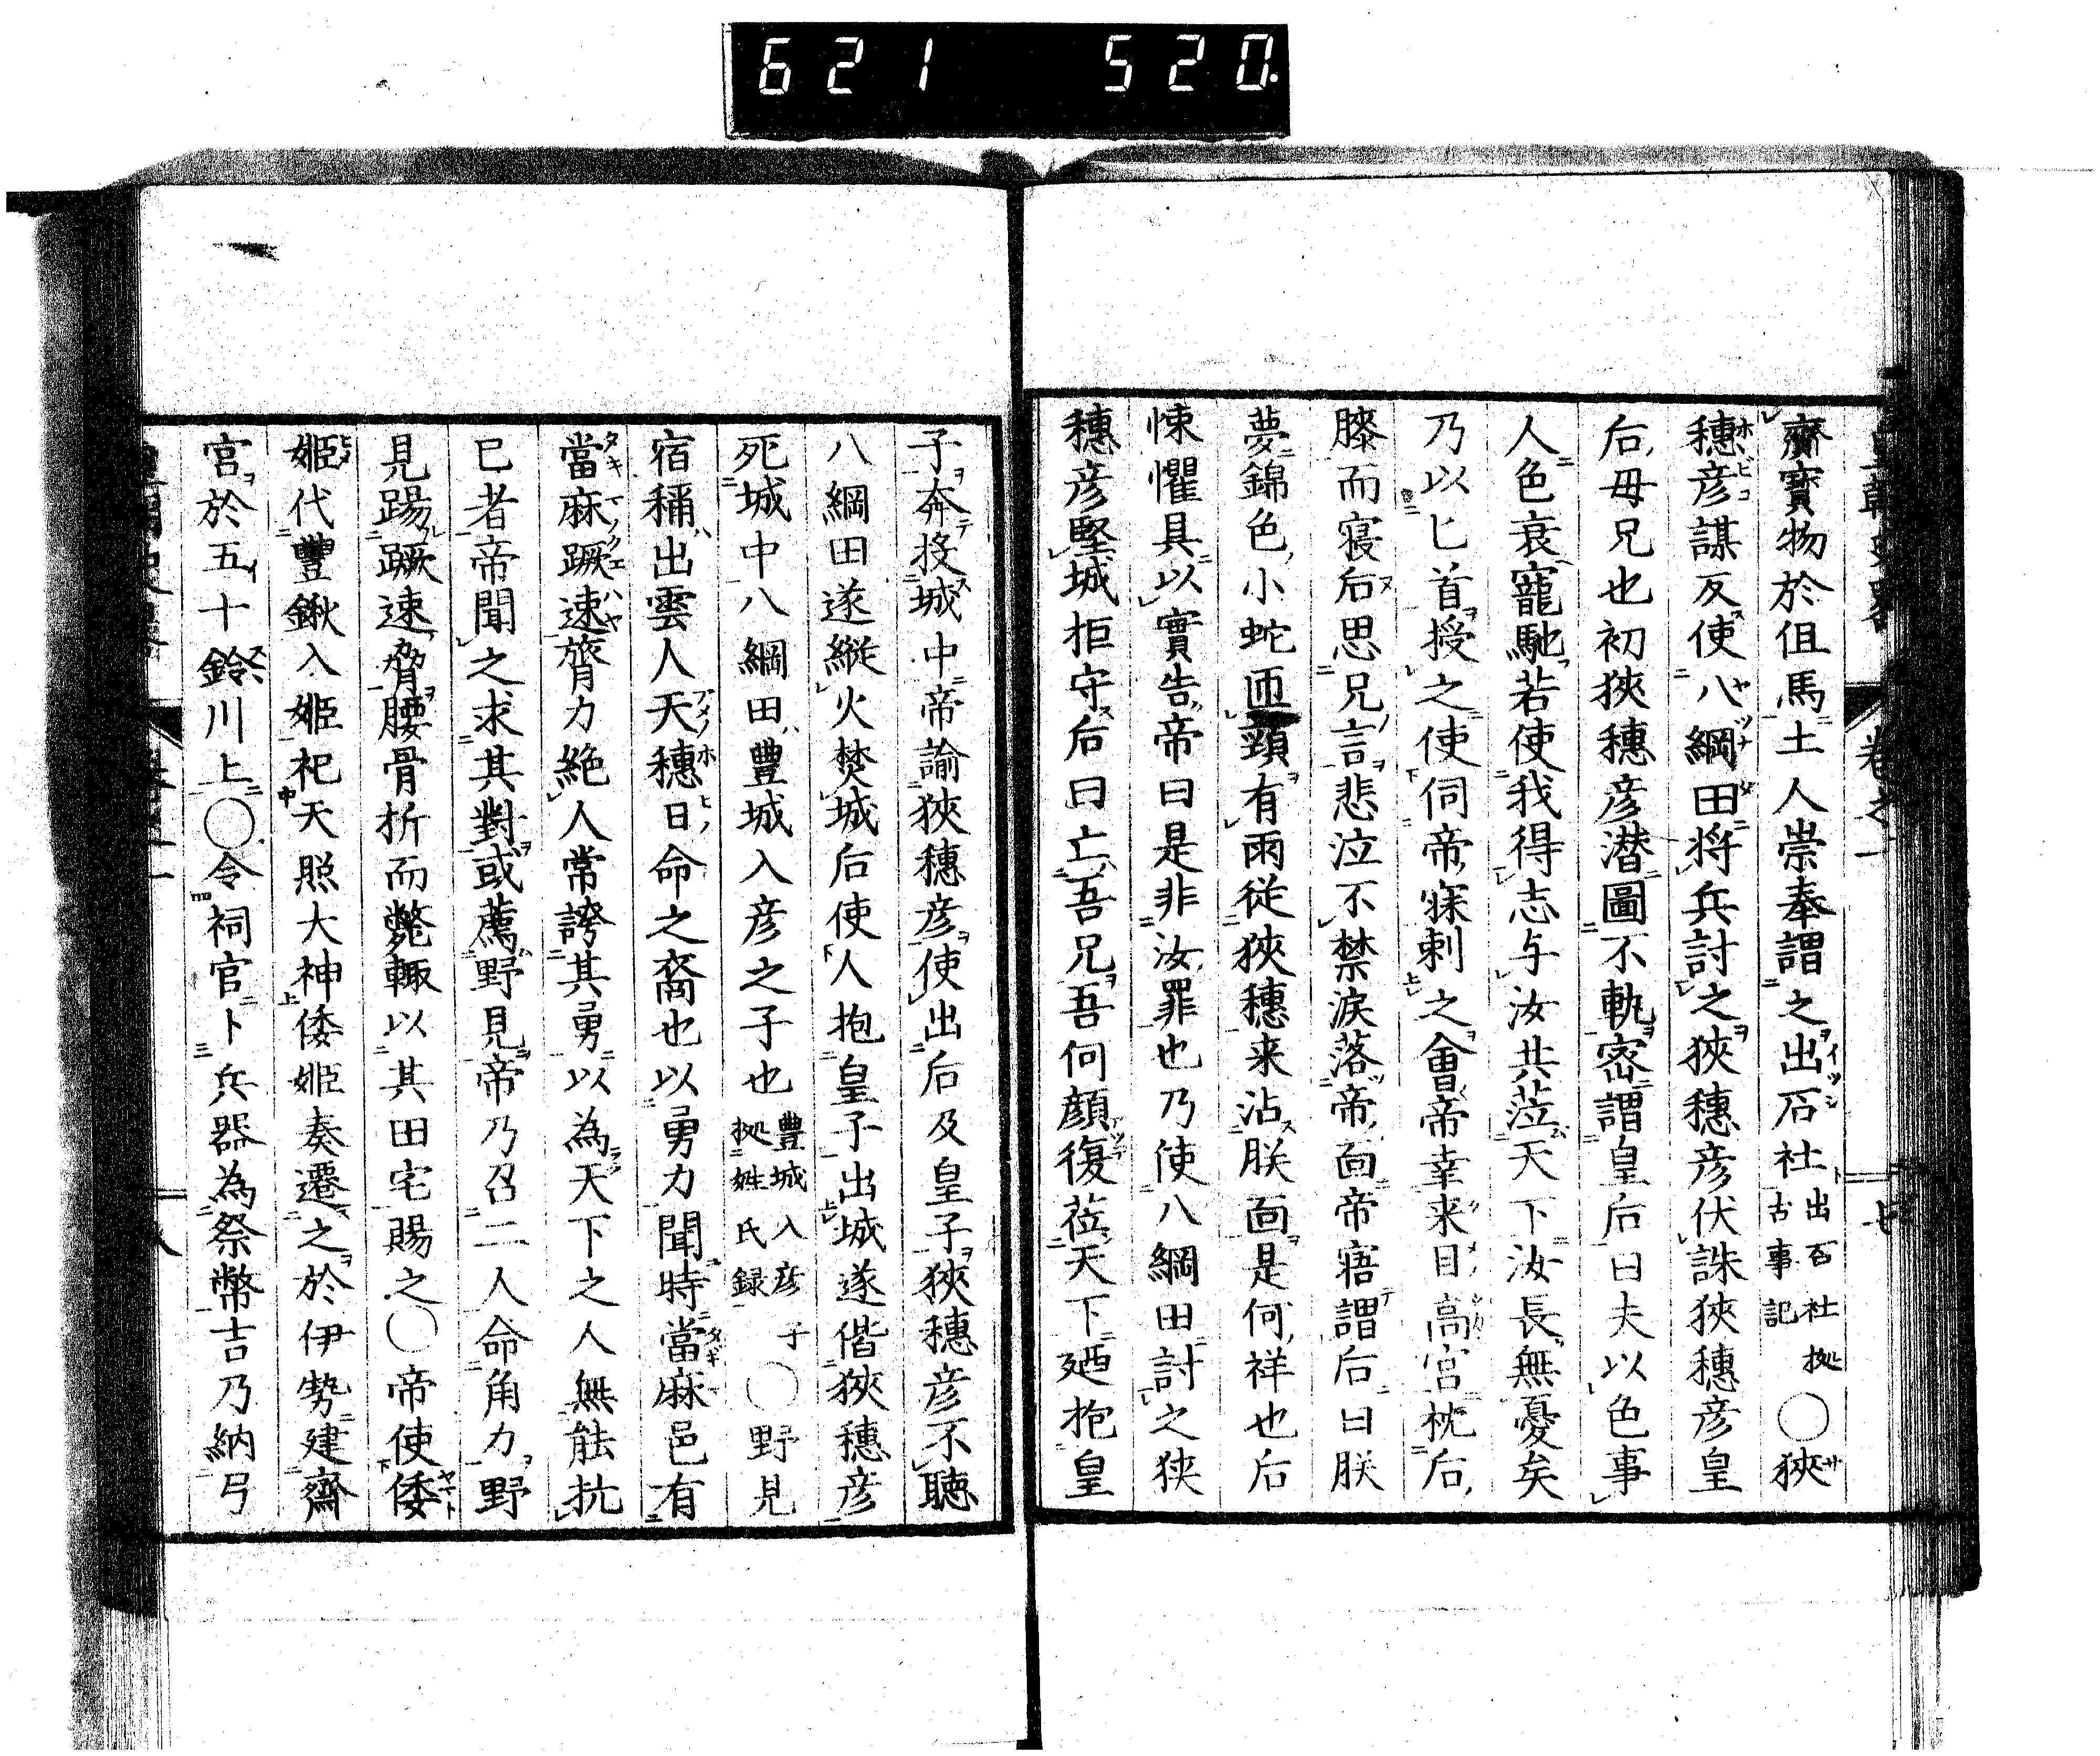 621 520.
齋寳物於但馬土人崇奉謂之出石社出石社拠古事記〇狹
穗彦謀反使八綱田将兵討之狹穗彦伏誅狹穗彦皇
后母兄也初狹穗彦潜圖不軌密謂皇后曰夫以色事
人色衰寵馳若使我得志与汝共莅天下汝長無憂矣
乃以匕首授之使伺帝寐刺之會帝幸来目高宮枕后
膝而寝后思兄言悲泣不禁涙落帝面帝寤謂后曰朕
夢錦色小蛇匝頸有雨従狹穗来沾朕面是何祥也后
悚懼具以實告帝曰是非汝罪也乃使八綱田討之狹
穗彦堅城拒守后曰亡吾兄吾何顔復莅天下廼抱皇
子奔投城中帝諭狹穗彦使出后及皇子狹穗彦不聴
八綱田遂縦火焚城后使人抱皇子出城遂偕狹穗彦
死城中八綱田豐城入彦之子也豐城入彦子拠姓氏録〇野見
宿稱出雲人天穗日命之裔也以勇力聞時當麻邑有
當麻蹶速膂力絶人常誇其勇以為天下之人無能抗
已者帝聞之求其對或薦野見帝乃召二人命角力野
見踢蹶速脅腰骨折而斃輙以其田宅賜之〇帝使倭
姫代豐鍬入姫祀天照大神倭姫奏遷之於伊勢建齋
宮於五十鈴川上〇令祠官卜兵器為祭幣吉乃納弓